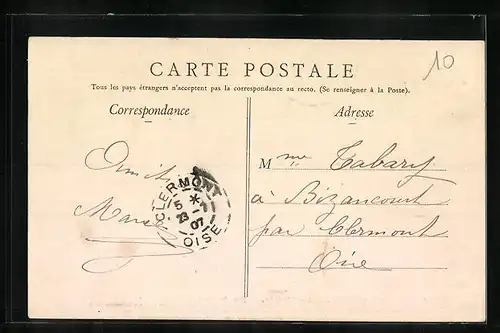 10
CARTE POSTALE
Tous les pays étrangers n'acceptent pas la correspondance au recto. (Se renseigner à la Poste).
Correspondance
Adresse
Mme Tabary
à Bizancourt
par Clermont
Oise
CLERMONT
5 *
23 -
07
OISE